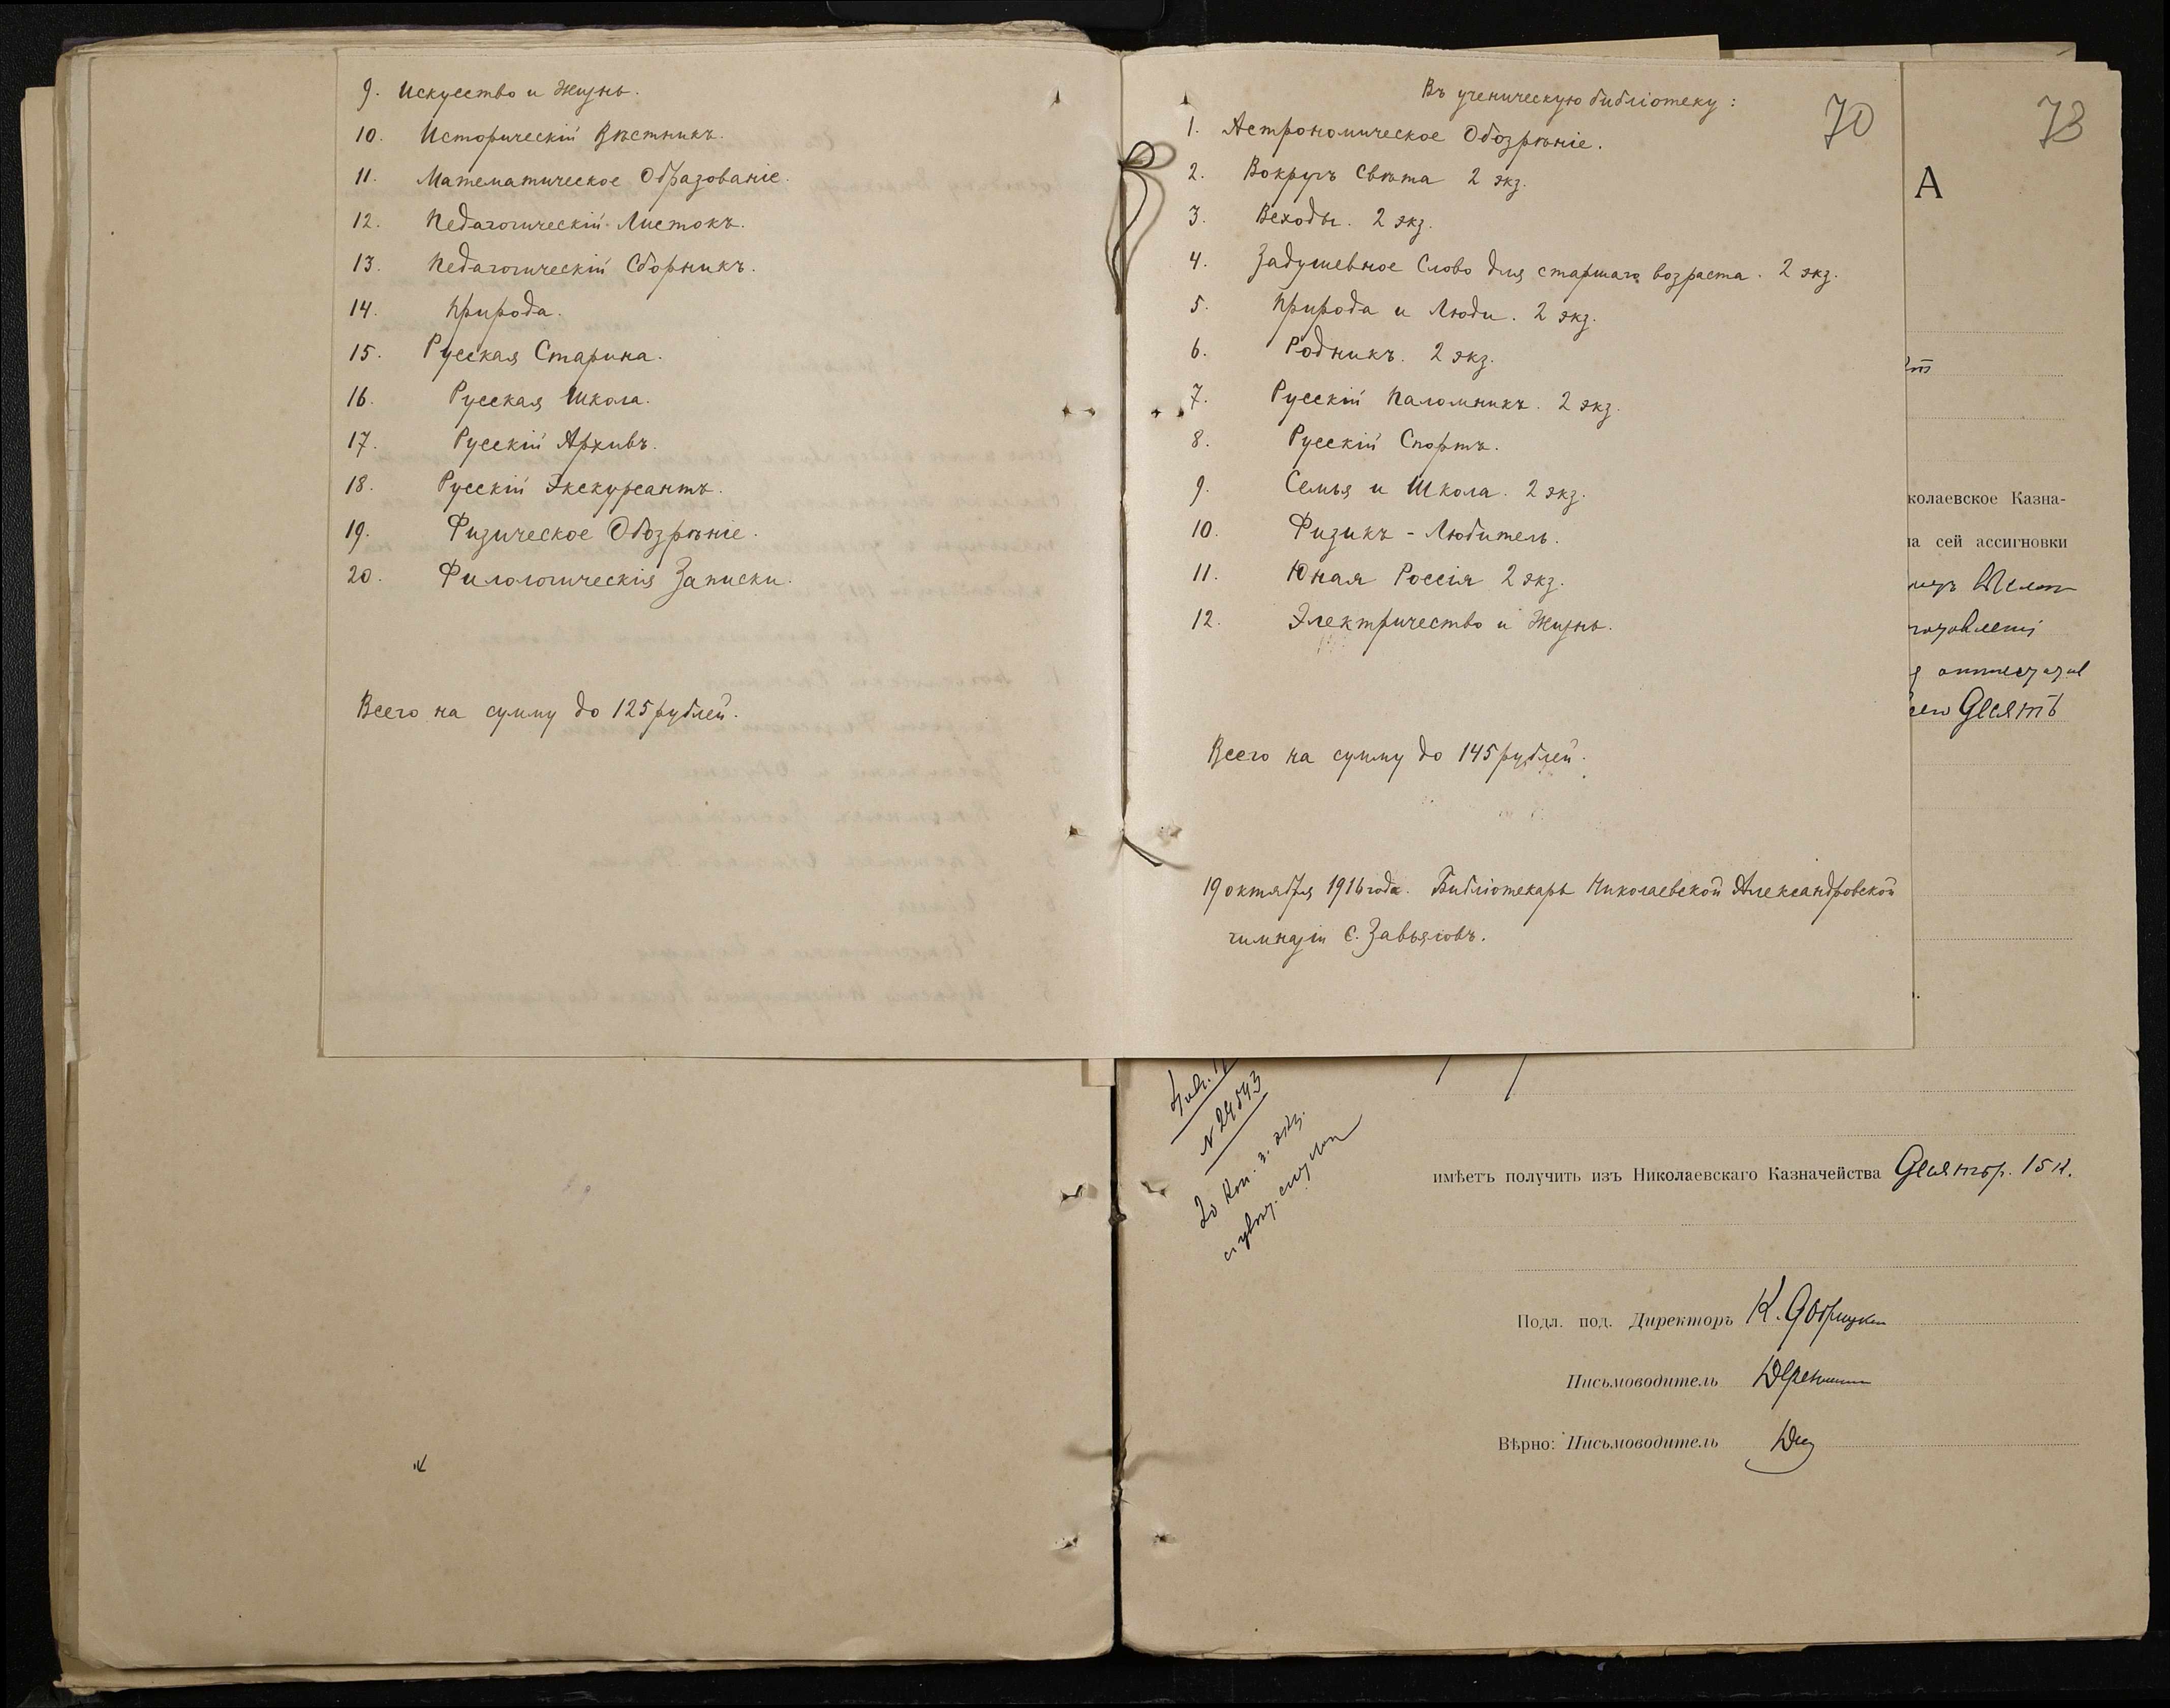 9. Искусство и Жизнь.
10. Историческій Вѣстникъ.
11. Математическое Образованіе.
12. Педагогическій Листокъ.
13. Педагогическій Сборникъ.
14. Природа.
15. Русская Старина.
16. Русская Школа.
17. Русскій Архивъ.
18. Русскій Экскурсантъ.
19. Физическое Обозрѣніе.
20. Филологическія Записки.
Всего на сумму до 125 рублей.
Въ ученическую библіотеку:
70
1. Астрономическое Обозрѣніе.
2. Вокругъ Свѣта 2 экз.
3. Всходы. 2 экз.
4. Задушевное Слово для старшаго возраста. 2 экз.
5. Природа и Люди. 2 экз.
6. Родникъ. 2 экз.
7. Русскій Паломникъ. 2 экз.
8. Русскій Спортъ.
9. Семья и Школа. 2 экз.
10. Физикъ - Любитель.
11. Юная Россія 2 экз.
12. Электричество и Жизнь.
Всего на сумму до 145 рублей.
19 октября 1916 года. Библіотекарь Николаевской Александровской
гимназіи С. Завьяловъ.
73
А
колаевское Казна-
на сей ассигновки
Десять
№ 24543
20 коп. з. экз.
имѣетъ получить изъ Николаевскаго Казначейства Десять р. 15 к.
Подл. под. Директоръ К.
Письмоводитель
Вѣрно: Письмоводитель